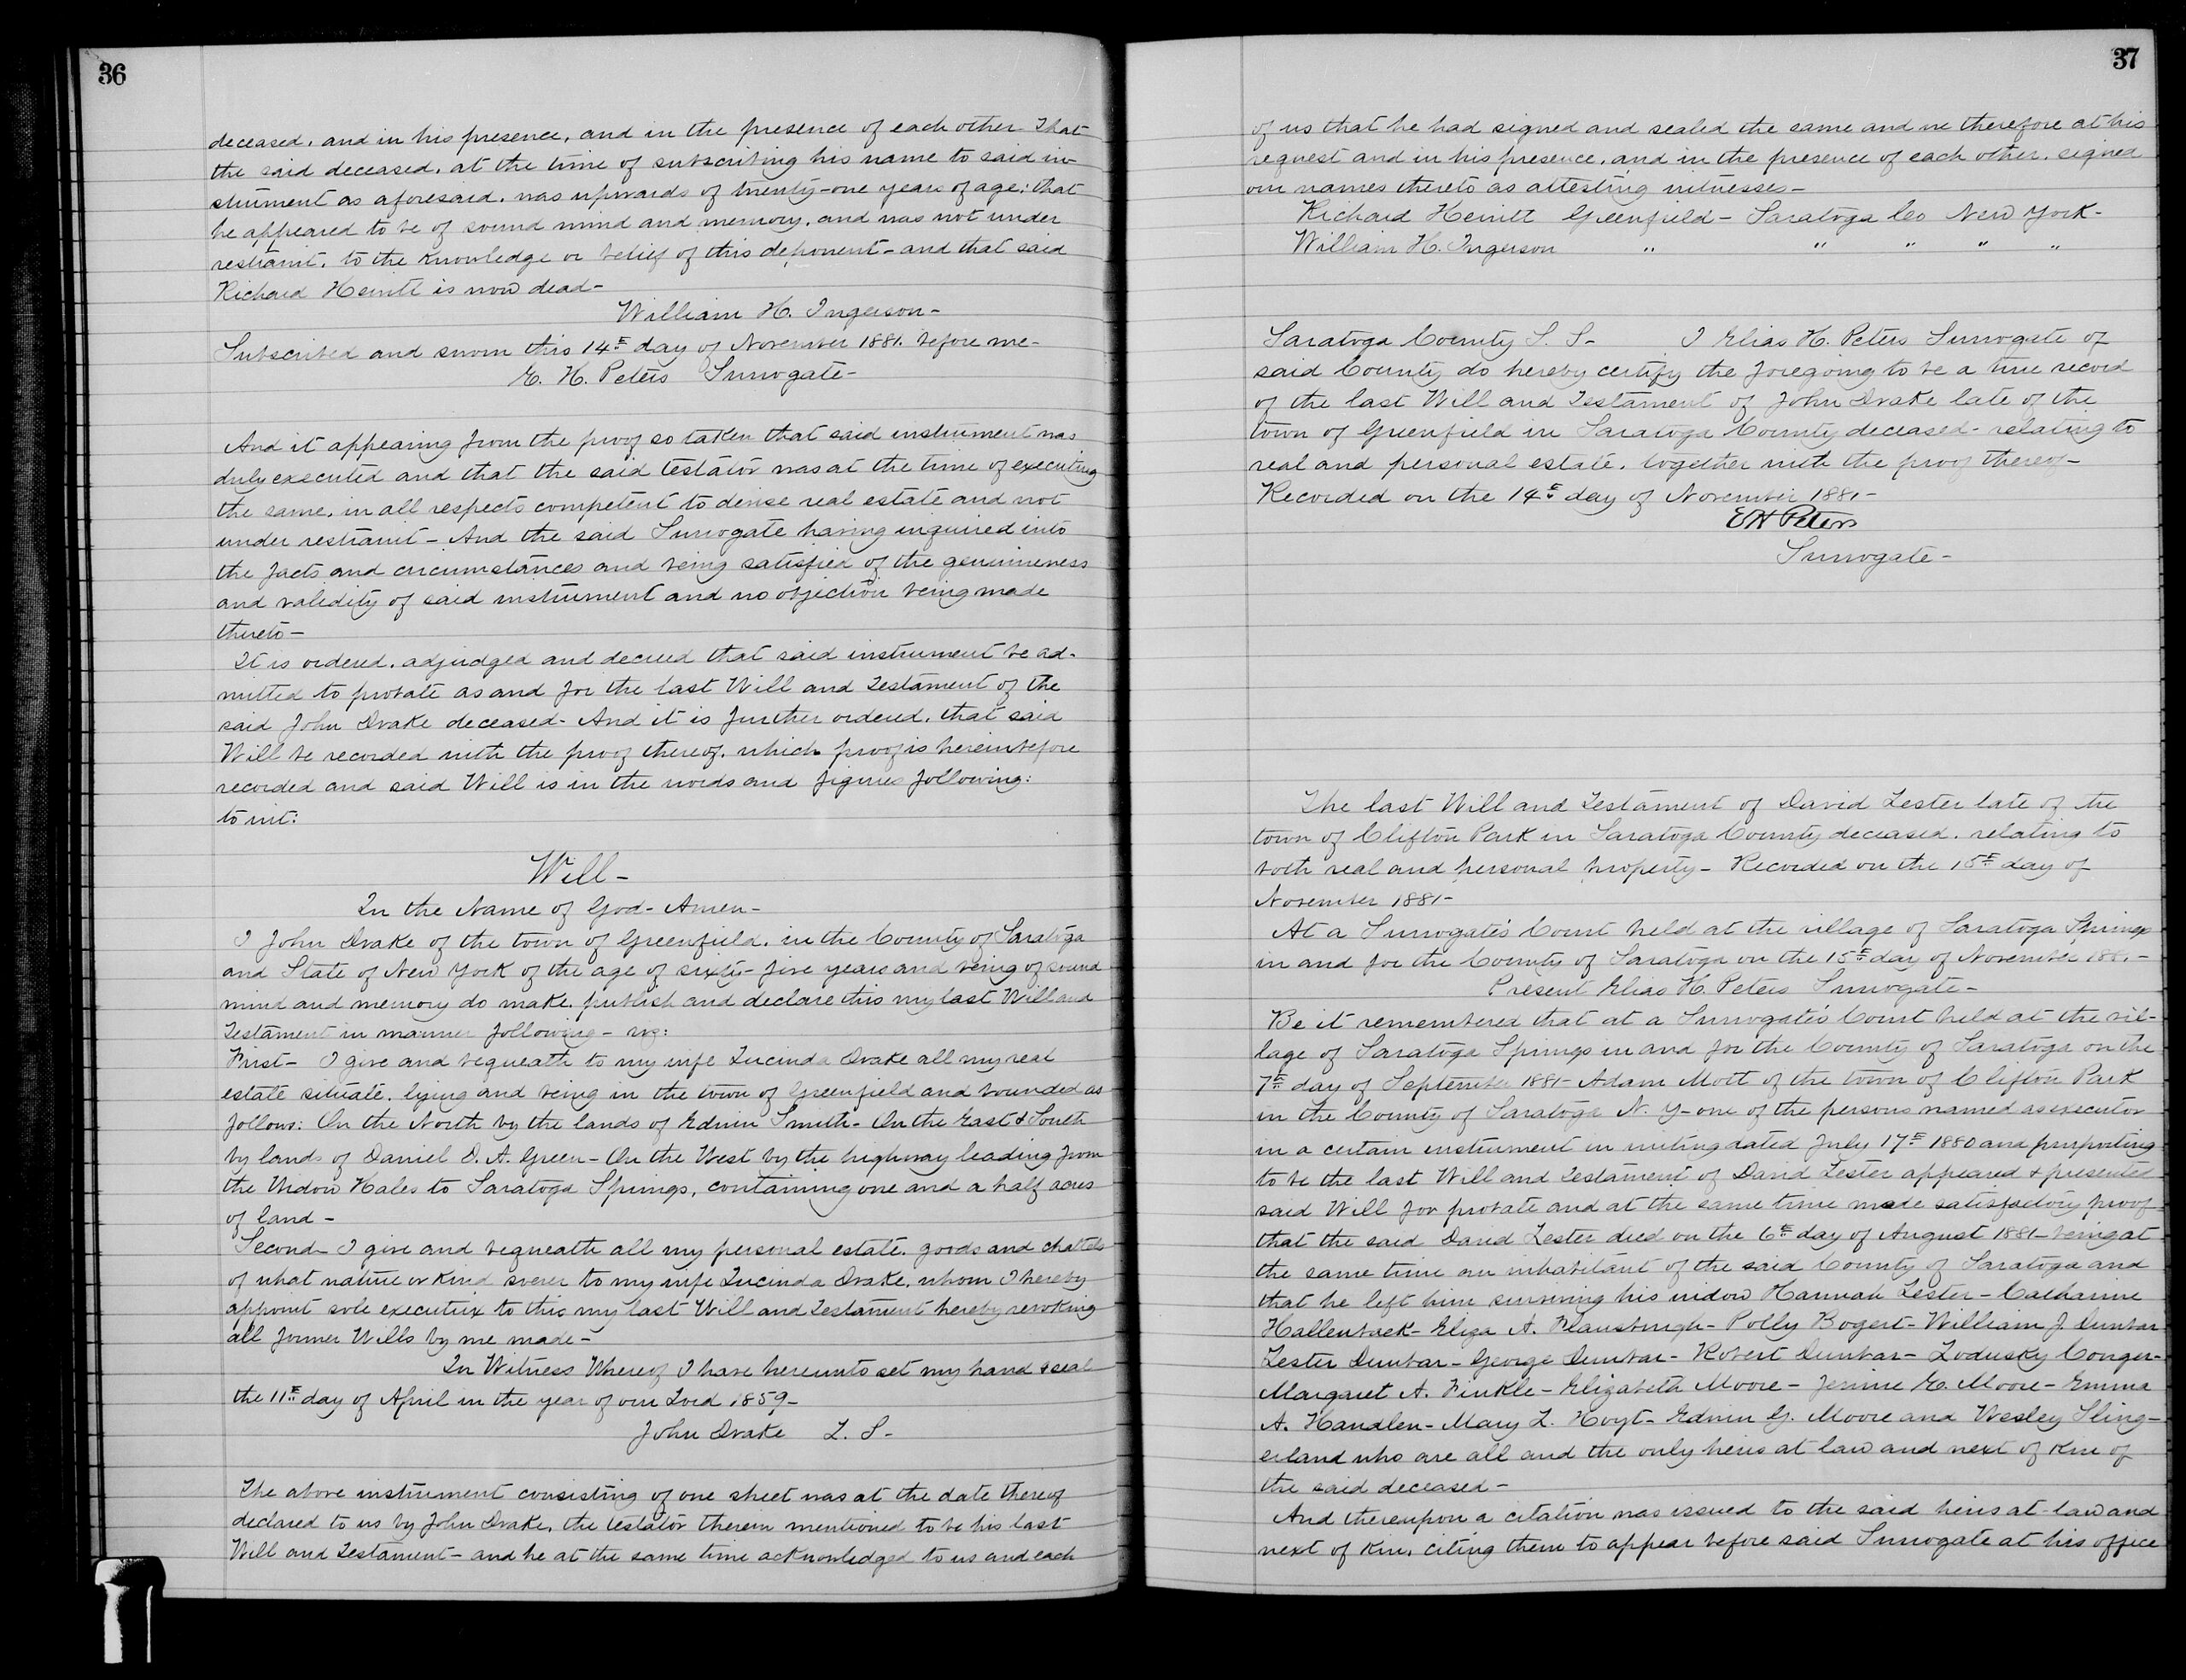 36
deceased, and in his presence, and in the presence of each other That
the said deceased, at the time of subscribing his name to said in-
strument as aforesaid, was upwards of twenty-one years of age; that
he appeared to be of sound mind and memory, and was not under
restraint, to the knowledge or belief of this deponent - and that said
Richard Hewitt is now dead -
William H. Ingerson -
Subscribed and sworn this 14th day of November 1881. before me -
E. H. Peters Surrogate -
And it appearing from the proof so taken that said instrument was
duly executed and that the said testator was at the time of executing
the same, in all respects competent to devise real estate and not
under restraint - And the said Surrogate having inquired into
the facts and circumstances and being satisfied of the genuineness
and validity of said instrument and no objection being made
thereto -
It is ordered, adjudged and decreed that said instrument be ad-
mitted to probate as and for the last Will and Testament of the
said John Drake deceased - And it is further ordered, that said
Will be recorded with the proof thereof, which proof is hereinbefore
recorded and said Will is in the words and figures following:
to wit:
Will -
In the Name of God - Amen -
I John Drake of the town of Greenfield, in the County of Saratoga
and State of New York of the age of sixty-five years and being of sound
mind and memory do make, publish and declare this my last Will and
Testament in manner following - viz:
First - I give and bequeath to my wife Lucinda Drake all my real
estate situate, lying and being in the town of Greenfield and bounded as
follows: On the North by the lands of Edwin Smith - On the East & South
by lands of Daniel D. A. Green - On the West by the highway leading from
the Widow Hales to Saratoga Springs, containing one and a half acres
of land -
Second - I give and bequeath all my personal estate, goods and chattels
of what nature or kind soever to my wife Lucinda Drake, whom I hereby
appoint sole executrix to this my last Will and Testament hereby revoking
all former Wills by me made -
In Witness Whereof I have hereunto set my hand & seal
the 11th day of April in the year of our Lord 1859 -
John Drake L. S -
The above instrument consisting of one sheet was at the date thereof
declared to us by John Drake, the testator therein mentioned to be his last
Will and Testament - and he at the same time acknowledged to us and each
37
of us that he had signed and sealed the same and we therefore at his
request and in his presence, and in the presence of each other, signed
our names thereto as attesting witnesses -
Richard Hewitt Greenfield - Saratoga Co New York -
William H. Ingerson " " " " "
Saratoga County S. S - I Elias H. Peters Surrogate of
said County do hereby certify the foregoing to be a true record
of the last Will and Testament of John Drake late of the
town of Greenfield in Saratoga County deceased - relating to
real and personal estate, together with the proof thereof -
Recorded on the 14th day of November 1881 -
E H Peters
Surrogate -
The last Will and Testament of David Lester late of the
town of Clifton Park in Saratoga County deceased, relating to
both real and personal property - Recorded on the 15th day of
November 1881 -
At a Surrogate's Court held at the village of Saratoga Springs
in and for the County of Saratoga on the 15th day of November 1881 -
Present Elias H. Peters Surrogate -
Be it remembered that at a Surrogate's Court held at the vil-
lage of Saratoga Springs in and for the County of Saratoga on the
7th day of September 1881 - Adam Mott of the town of Clifton Park
in the County of Saratoga N. Y - one of the persons named as executor
in a certain instrument in writing dated July 17th 1880 and purporting
to be the last Will and Testament of David Lester appeared & presented
said Will for probate and at the same time made satisfactory proof
that the said David Lester died on the 6th day of August 1881 - being at
the same time an inhabitant of the said County of Saratoga and
that he left him surviving his widow Hannah Lester - Catharine
Hallenback - Eliza A. Flansburgh - Polly Bogert - William J. Dunbar
Lester Dunbar - George Dunbar - Robert Dunbar - Lodusky Conger -
Margaret A. Finkle - Elizabeth Moore - Jennie E. Moore - Emma
A. Handlen - Mary L. Hoyt - Edwin G. Moore and Wesley Sling-
erland who are all and the only heirs at law and next of kin of
the said deceased -
And thereupon a citation was issued to the said heirs at law and
next of kin, citing them to appear before said Surrogate at his office